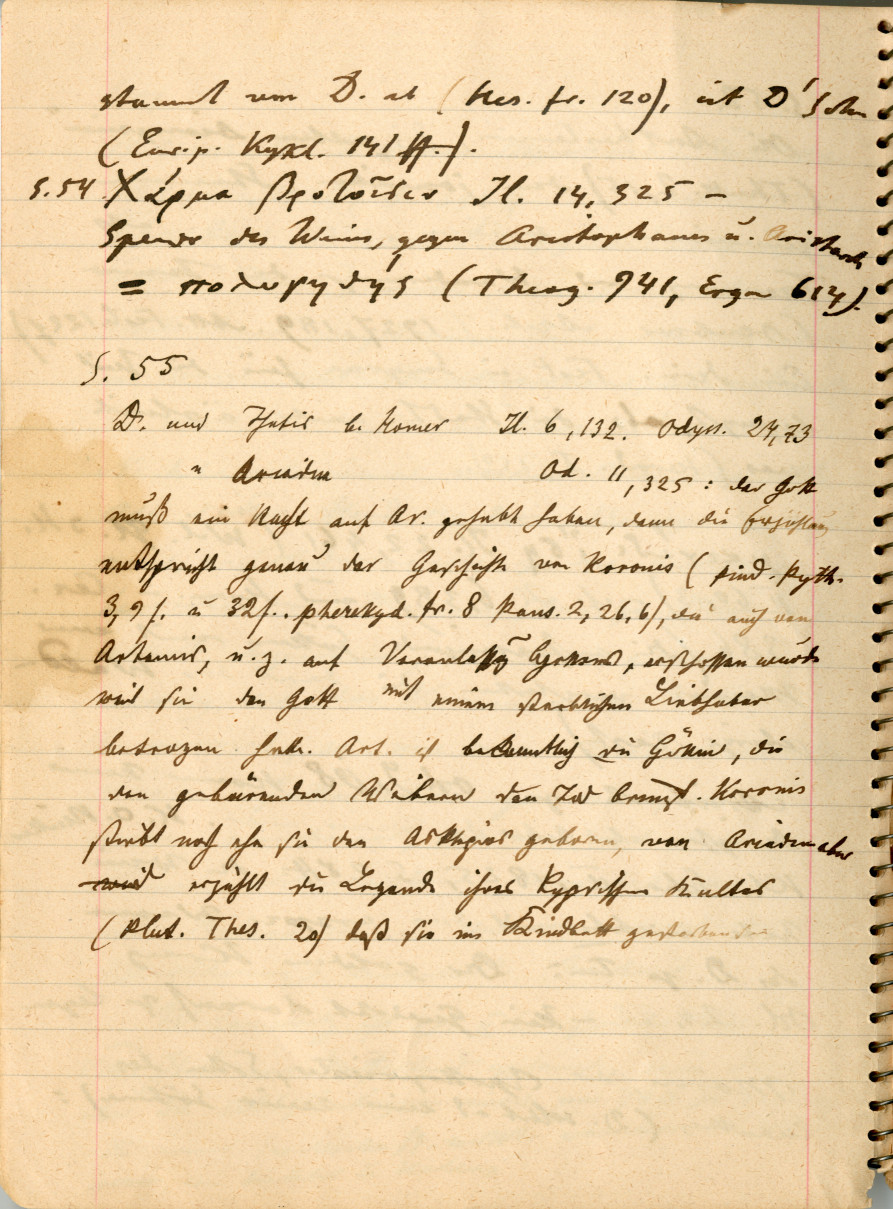 stammt von D. ab (Hes. fr. 120), ist D' Sohn
(Eurip. Kykl. 141 ff.).
S. 54 Χάρμα βροτοῖσιν Il. 14, 325 –
Spender des Weins, gegen Aristophanes u. Aristarch
= πολυγηθής (Theog. 941, Erga 614).
S. 55
D. und Thetis b. Homer Il. 6, 132. Odyss. 24, 73
" Ariadne Od. 11, 325 : der Gott
muß ein Recht auf Ar. gehabt haben, denn die Erzählung
entspricht genau der Geschichte von Koronis (Pind. Pyth.
3, 9 f. u 32 f. Pherekyd. fr. 8 Paus. 2, 26, 6), die auch von
Artemis, u. z. auf Veranlassg Apollons, erschossen wurde
weil sie den Gott mit einem sterblichen Liebhaber
betrogen hatte. Art. ist bekanntlich die Göttin, die
den gebärenden Weibern den Tod bringt. Koronis
stirbt noch ehe sie den Asklepios geboren, von Ariadne aber
wird erzählt die Legende ihres kyprischen Kultes
(Plut. Thes. 20) daß sie im Kindbett gestorben sei